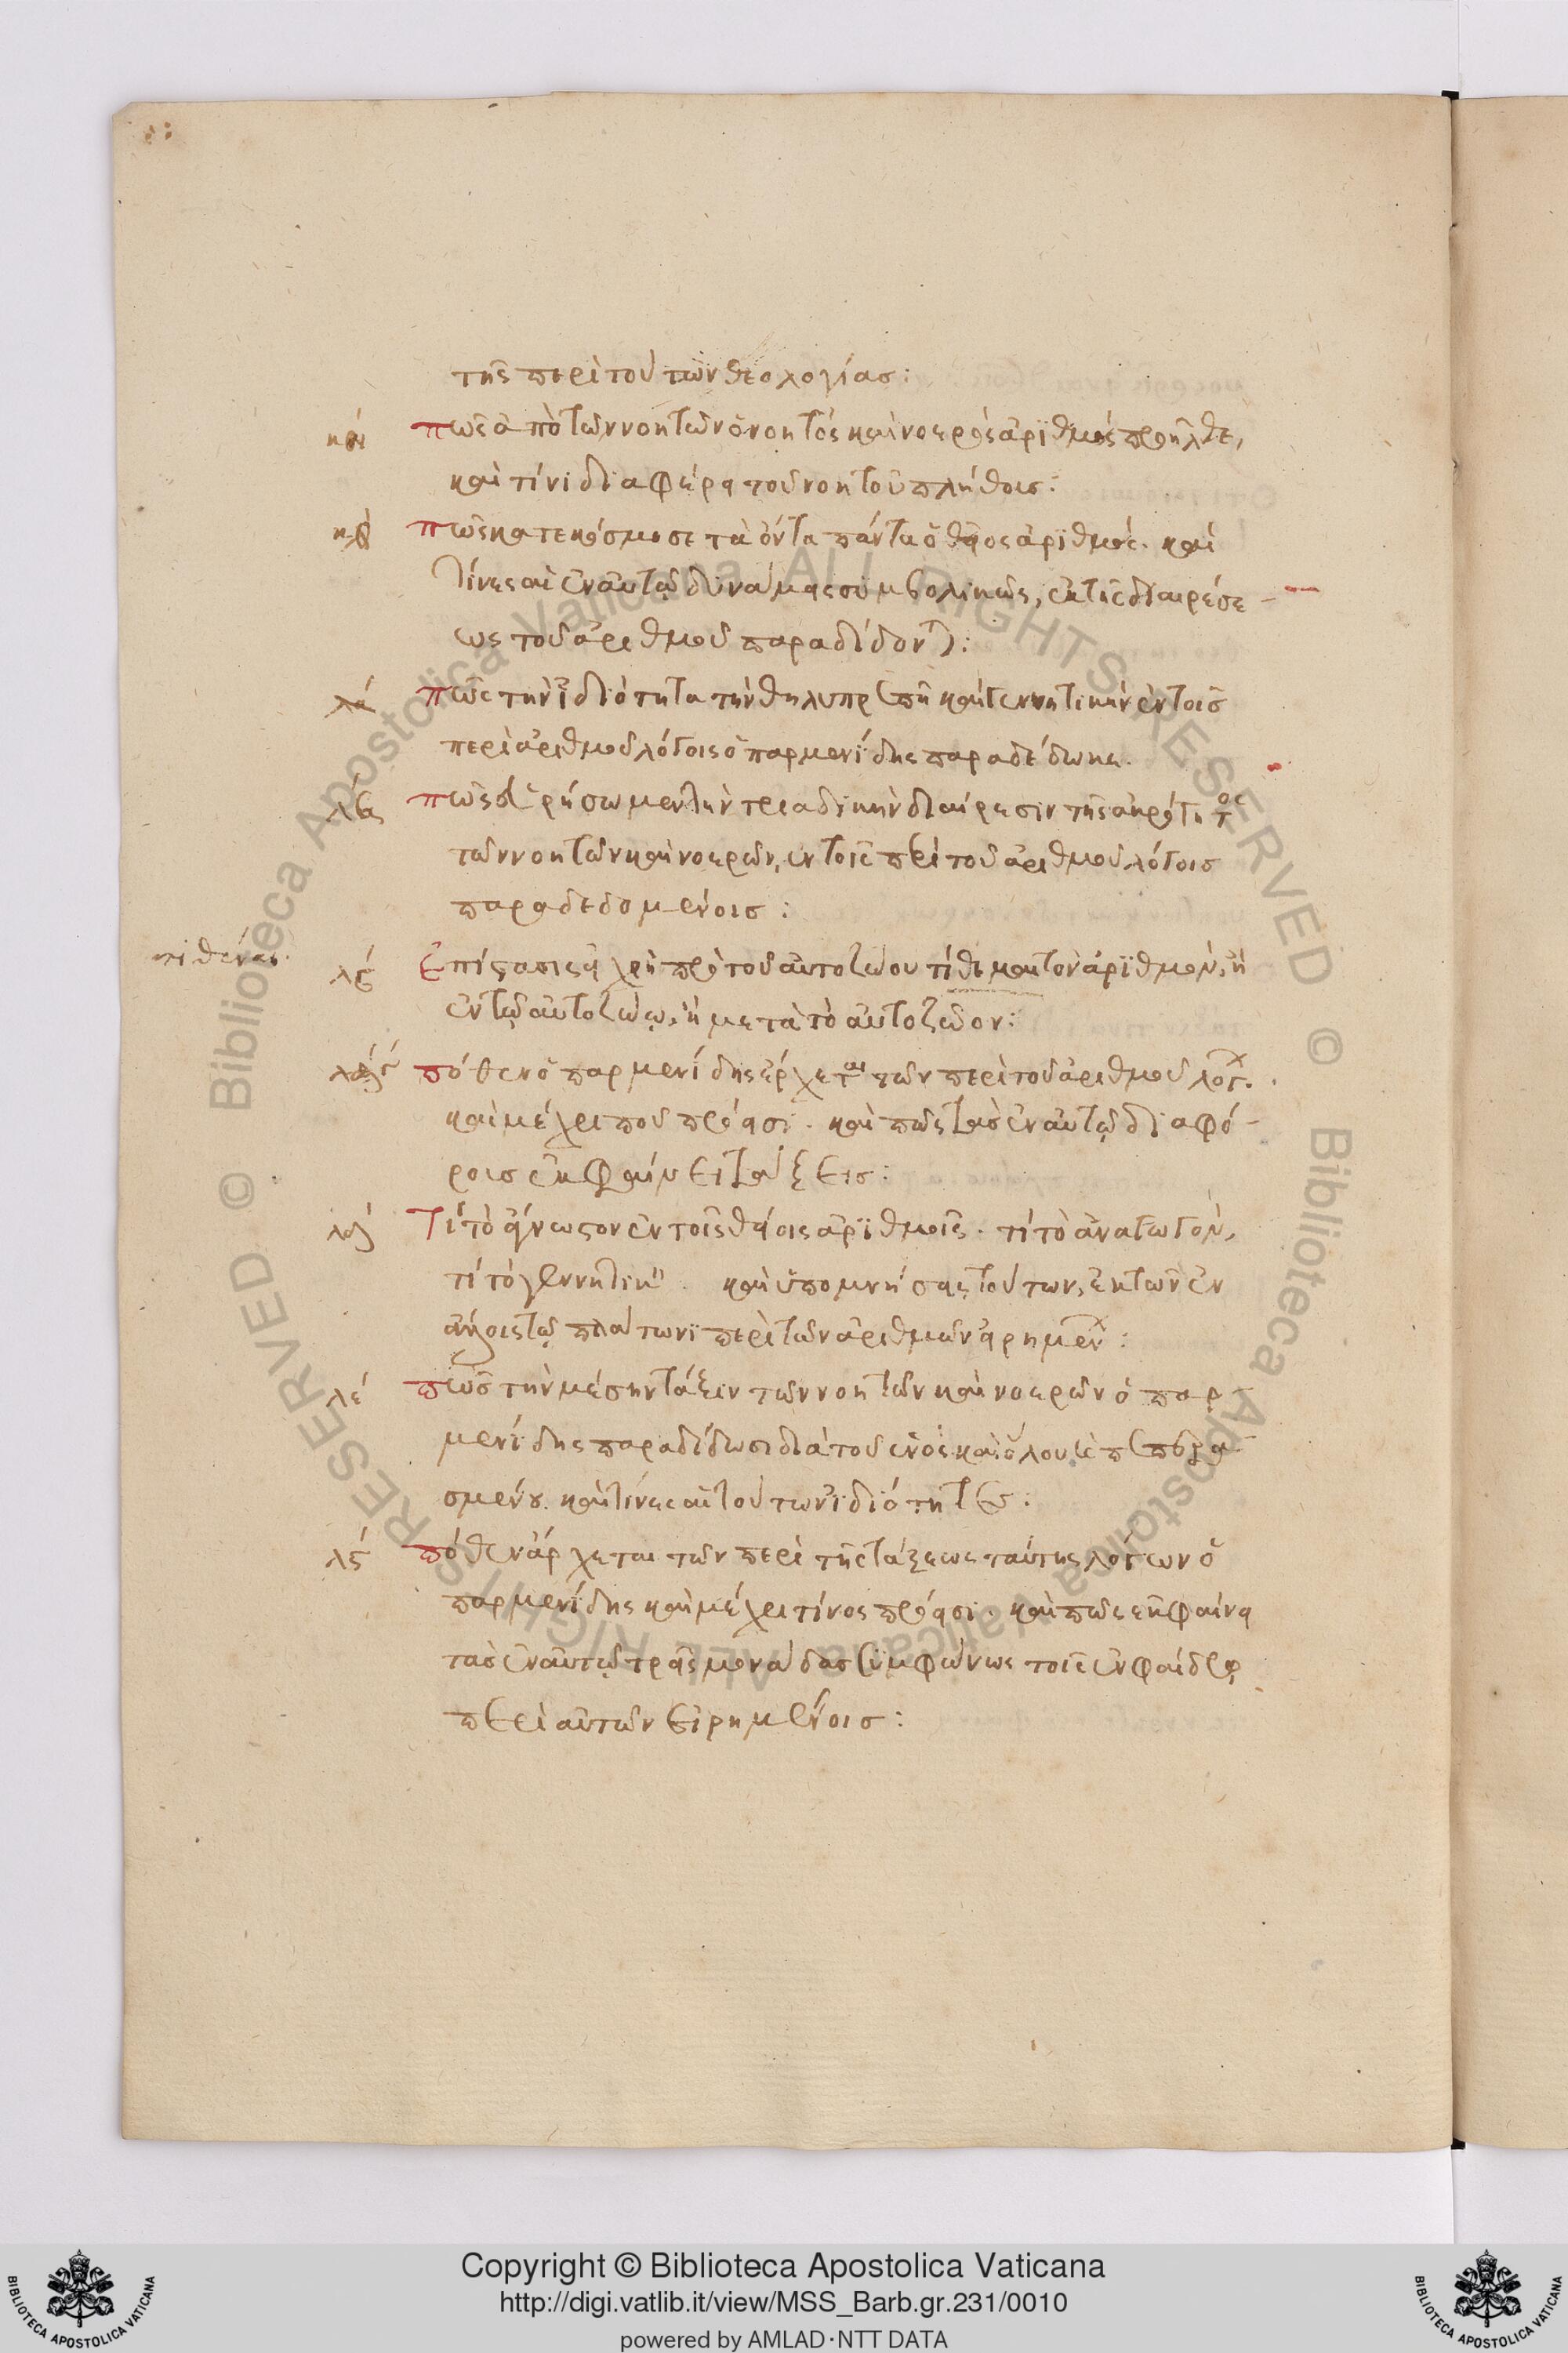 τῆς περὶ τούτων θεολογίας:
πῶς ἀπὸ τῶν νοητῶν ὁ νοητὸς καὶ νοερὸς ἀριθμὸς προῆλθε,
καὶ τίνι διαφέρει τοῦ νοητοῦ πλήθους:
πῶς κατεκόσμησε τὰ ὄντα πάντα ὁ θεῖος ἀριθμός. καὶ
τίνες αἱ ἐν αὐτῷ δυνάμεις συμβολικῶς, ἐκ τῆς διαιρέσε-
ως τοῦ ἀριθμοῦ παραδίδονται:
λα πῶς τὴν ἰδιότητα τὴν θηλυπρεπῆ καὶ γεννητικὴν ἐν τοῖς
περὶ ἀριθμοῦ λόγοις ὁ παρμενίδης παραδέδωκε.
λβ πῶς εὑρήσωμεν τὴν τριαδικὴν διαίρεσιν τῆς ἀκρότητος
τῶν νοητῶν καὶ νοερῶν, ἐν τοῖς περὶ τοῦ ἀριθμοῦ λόγοις
παραδεδομένοις:
Ἐπίστασις εἰ χρὴ πρὸ τοῦ αὐτοζώου τίθεμαι τὸν ἀριθμόν, ἢ
ἐν τῷ αὐτοζώῳ, ἢ μετὰ τὸ αὐτοζῶον:
πόθεν ὁ παρμενίδης ἄρχεται τῶν περὶ τοῦ ἀριθμοῦ λόγ.
καὶ μέχρι ποῦ πρόεισι. καὶ πῶς τὰς ἐν αὐτῷ διαφό-
ροις ἐκφαίνει τάξεις:
λδ Τί τὸ ἄγνωστον ἐν τοῖς θείοις ἀριθμοῖς. τί τὸ ἀναγωγόν,
τί τὸ γεννητικόν. καὶ ὑπομνήσεις τούτων, ἐκ τῶν ἐν
ἄλλοις τῷ πλάτωνι περὶ τῶν ἀριθμῶν εἰρημένων:
λε πῶς τὴν μέσην τάξιν τῶν νοητῶν καὶ νοερῶν ὁ παρ-
μενίδης παραδίδωσι διὰ τοῦ ἑνὸς καὶ ὅλου καὶ πεπερα-
σμένου. καὶ τίνες αἱ τούτων ἰδιότητες:
λς πόθεν ἄρχεται τῶν περὶ τῆς τάξεως ταύτης λόγων ὁ
παρμενίδης καὶ μέχρι τίνος πρόεισι. καὶ πῶς ἐκφαίνει
τὰς ἐν αὐτῷ τρεῖς μονάδας συμφώνως τοῖς ἐν φαίδρῳ
περὶ αὐτῶν εἰρημένοις:
© Biblioteca Apostolica Vaticana ALL RIGHTS RESERVED © Biblioteca Apostolica Vaticana ALL RIGHTS RESERVED
Copyright © Biblioteca Apostolica Vaticana
http://digi.vatlib.it/view/MSS_Barb.gr.231/0010
powered by AMLAD·NTT DATA
BIBLIOTECA APOSTOLICA VATICANA
BIBLIOTECA APOSTOLICA VATICANA